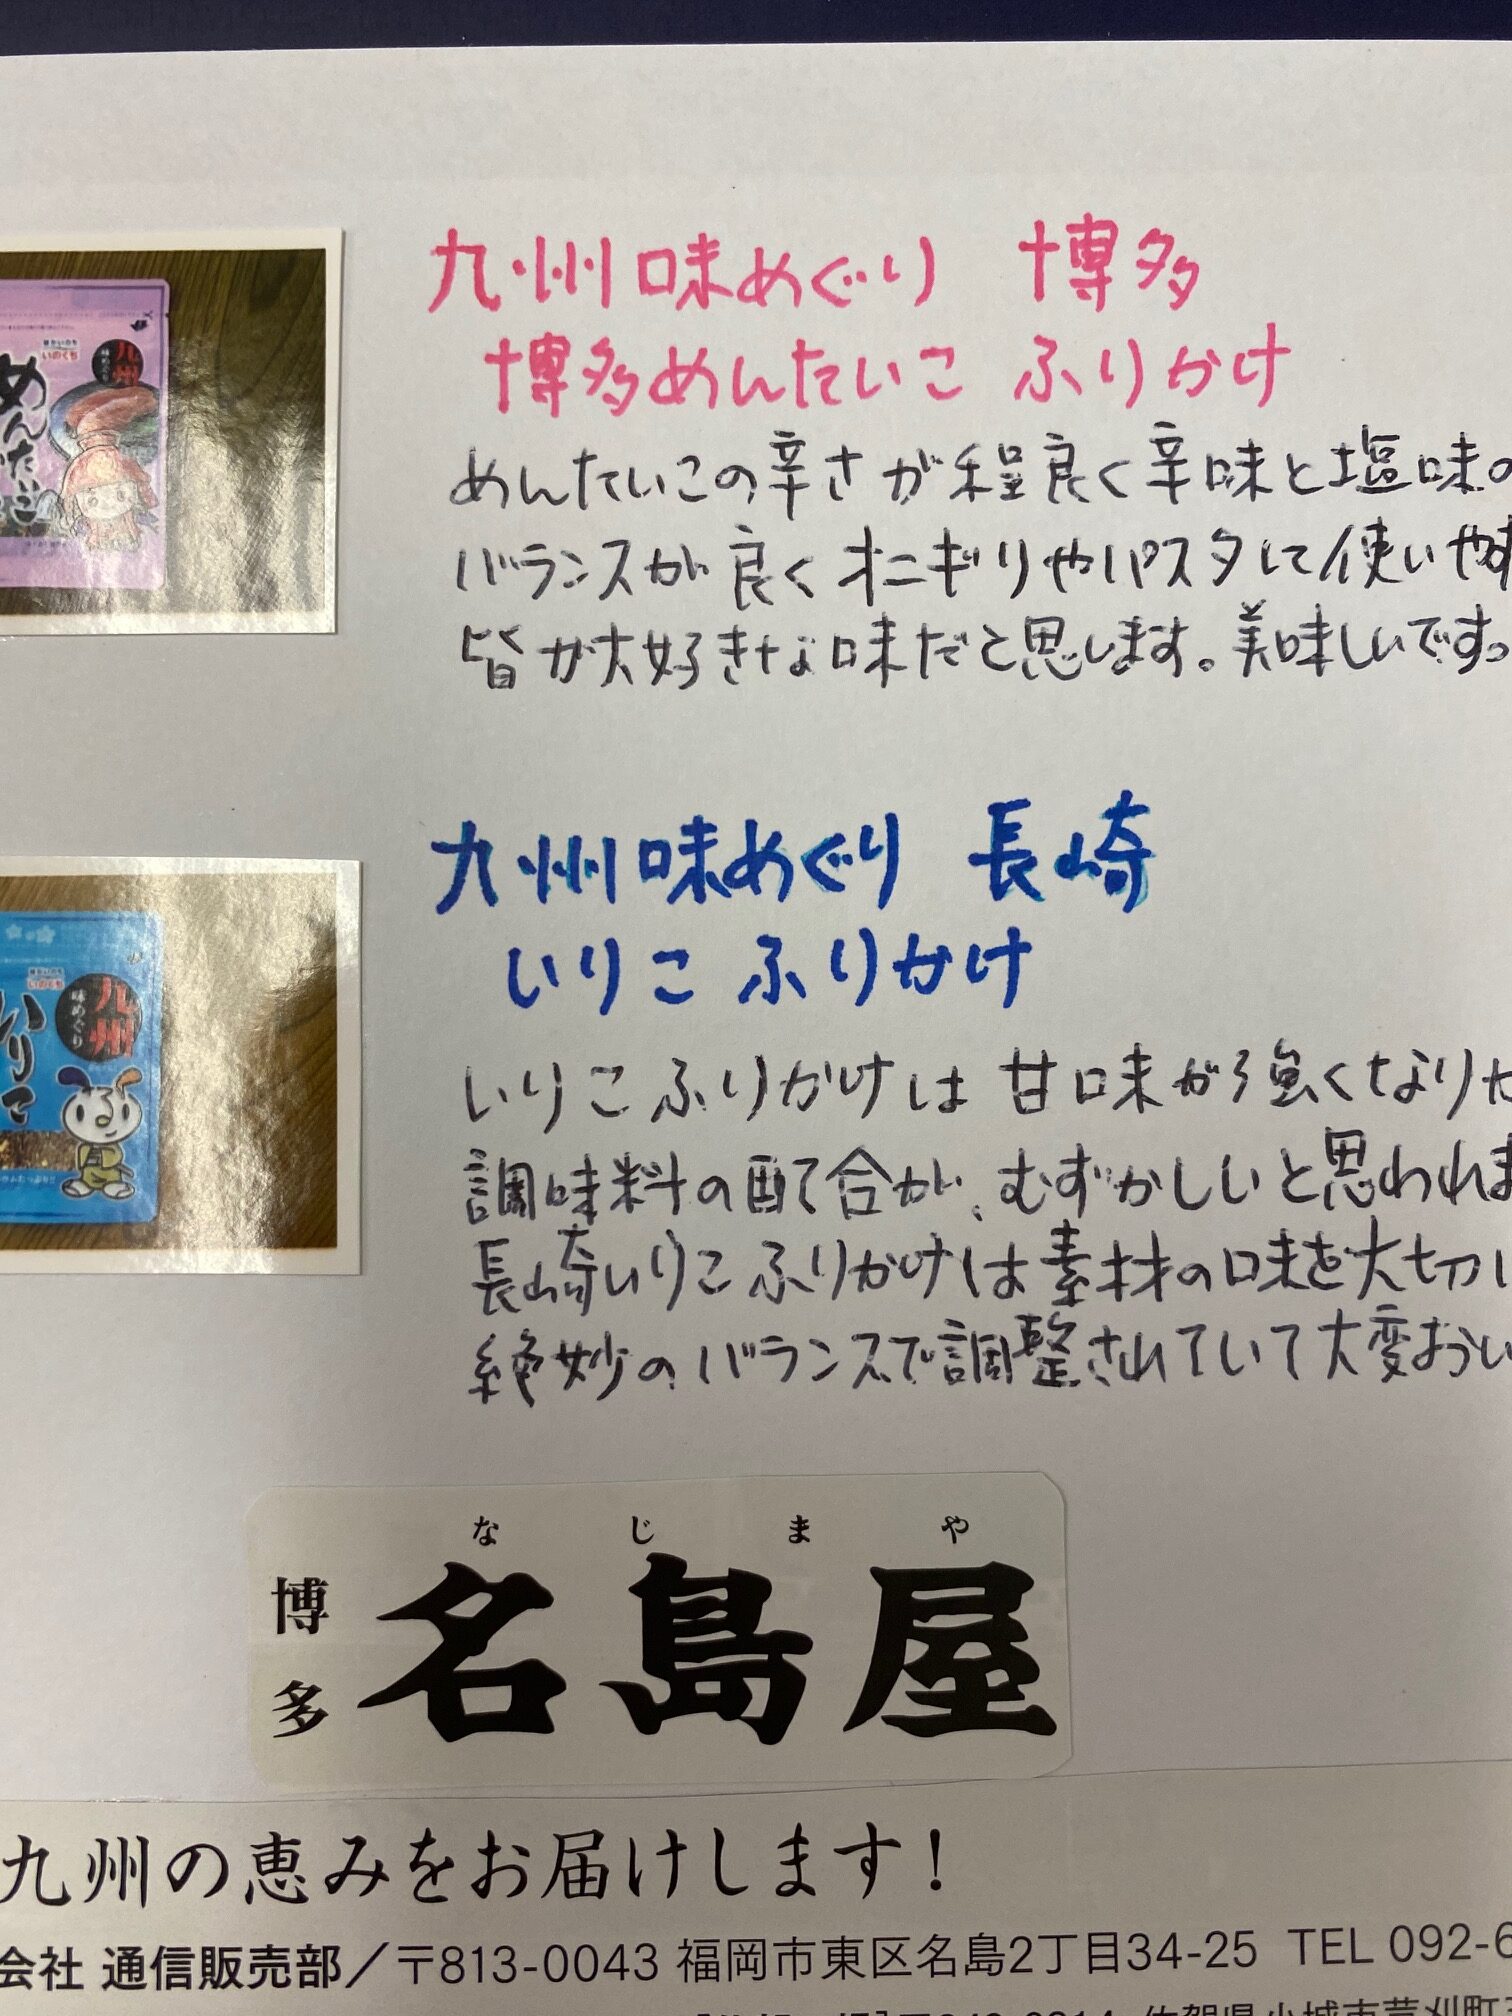 九州味めぐり 博多
博多めんたいこ ふりかけ
めんたいこの辛さが程良く辛味と塩味の
バランスが良くオニギリやパスタにて使いや
皆が大好きな味だと思します。美味しいです。
九州
めんたいこ
いのくち
九州味めぐり 長崎
いりこ ふりかけ
いりこふりかけは甘味が強くなりか
調味料の配合が、むずかしいと思われま
長崎いりこふりかけは素材の味を大切に
絶妙のバランスで調整されていて大変おい
九州
味めぐり
いりこ
いのくち
なじまや
博多 名島屋
九州の恵みをお届けします!
会社 通信販売部/〒813-0043 福岡市東区名島2丁目34-25 TEL 092-6